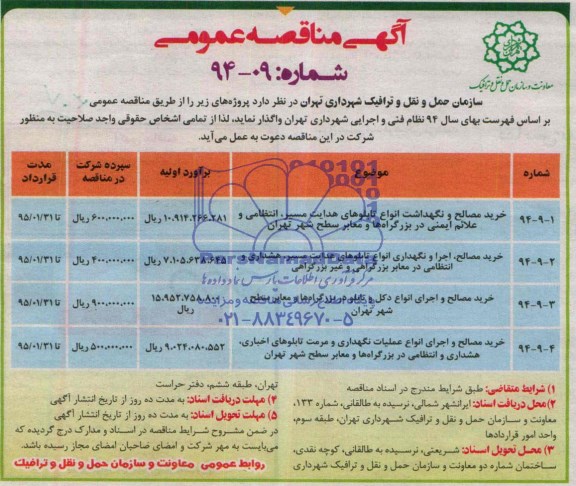 آگهی مناقصه عمومی
شماره: ۰۹-۹۴
معاونت و سازمان حمل و نقل ترافیک
سازمان حمل و نقل و ترافیک شهرداری تهران در نظر دارد پروژه‌های زیر را از طریق مناقصه عمومی
بر اساس فهرست بهای سال ۹۴ نظام فنی و اجرایی شهرداری تهران واگذار نماید، لذا از تمامی اشخاص حقوقی واجد صلاحیت به منظور
شرکت در این مناقصه دعوت به عمل می‌آید.
شماره موضوع برآورد اولیه سپرده شرکت در مناقصه مدت قرارداد
۹۴-۹-۱ خرید مصالح و نگهداشت انواع تابلوهای هدایت مسیر، انتظامی و ۱۰.۹۱۴.۲۶۶.۲۸۱ ریال ۶۰۰.۰۰۰.۰۰۰ ریال تا ۹۵/۰۱/۳۱
علائم ایمنی در بزرگراه‌ها و معابر سطح شهر تهران
۹۴-۹-۲ خرید مصالح، اجرا و نگهداری انواع تابلوهای هدایت مسیر، هشداری و ۴۰۰.۰۰۰.۰۰۰ ریال تا ۹۵/۰۱/۳۱
انتظامی در معابر بزرگراهی و غیر بزرگراهی
۹۴-۹-۳ خرید مصالح و اجرای انواع دکل و تابلو در بزرگراه‌ها و معابر سطح ریال ۹۰۰.۰۰۰.۰۰۰ ریال تا ۹۵/۰۱/۳۱
شهر تهران
۹۴-۹-۴ خرید مصالح و اجرای انواع عملیات نگهداری و مرمت تابلوهای اخباری، ۹.۰۲۴.۰۸۰.۵۵۲ ریال ۵۰۰.۰۰۰.۰۰۰ ریال تا ۹۵/۰۱/۳۱
هشداری و انتظامی در بزرگراه‌ها و معابر سطح شهر تهران
مرکز فرآوری اطلاعات پارس نماد داده‌ها
۰۲۱-۸۸۳۴۹۶۷۰-۵
۱) شرایط متقاضی: طبق شرایط مندرج در اسناد مناقصه
۲) محل دریافت اسناد: ایرانشهر شمالی، نرسیده به طالقانی، شماره ۱۳۳،
معاونت و سازمان حمل و نقل و ترافیک شهرداری تهران، طبقه سوم،
واحد امور قراردادها
۳) محل تحویل اسناد: شریعتی، نرسیده به طالقانی، کوچه نقدی،
ساختمان شماره دو معاونت و سازمان حمل و نقل و ترافیک شهرداری
تهران، طبقه ششم، دفتر حراست
۴) مهلت دریافت اسناد: به مدت ده روز از تاریخ انتشار آگهی
۵) مهلت تحویل اسناد: به مدت ده روز از تاریخ انتشار آگهی
در ضمن مشروح شرایط مناقصه در اسناد و مدارک درج گردیده که
می‌بایست به مهر شرکت و امضای صاحبان امضای مجاز رسیده باشد.
روابط عمومی معاونت و سازمان حمل و نقل و ترافیک